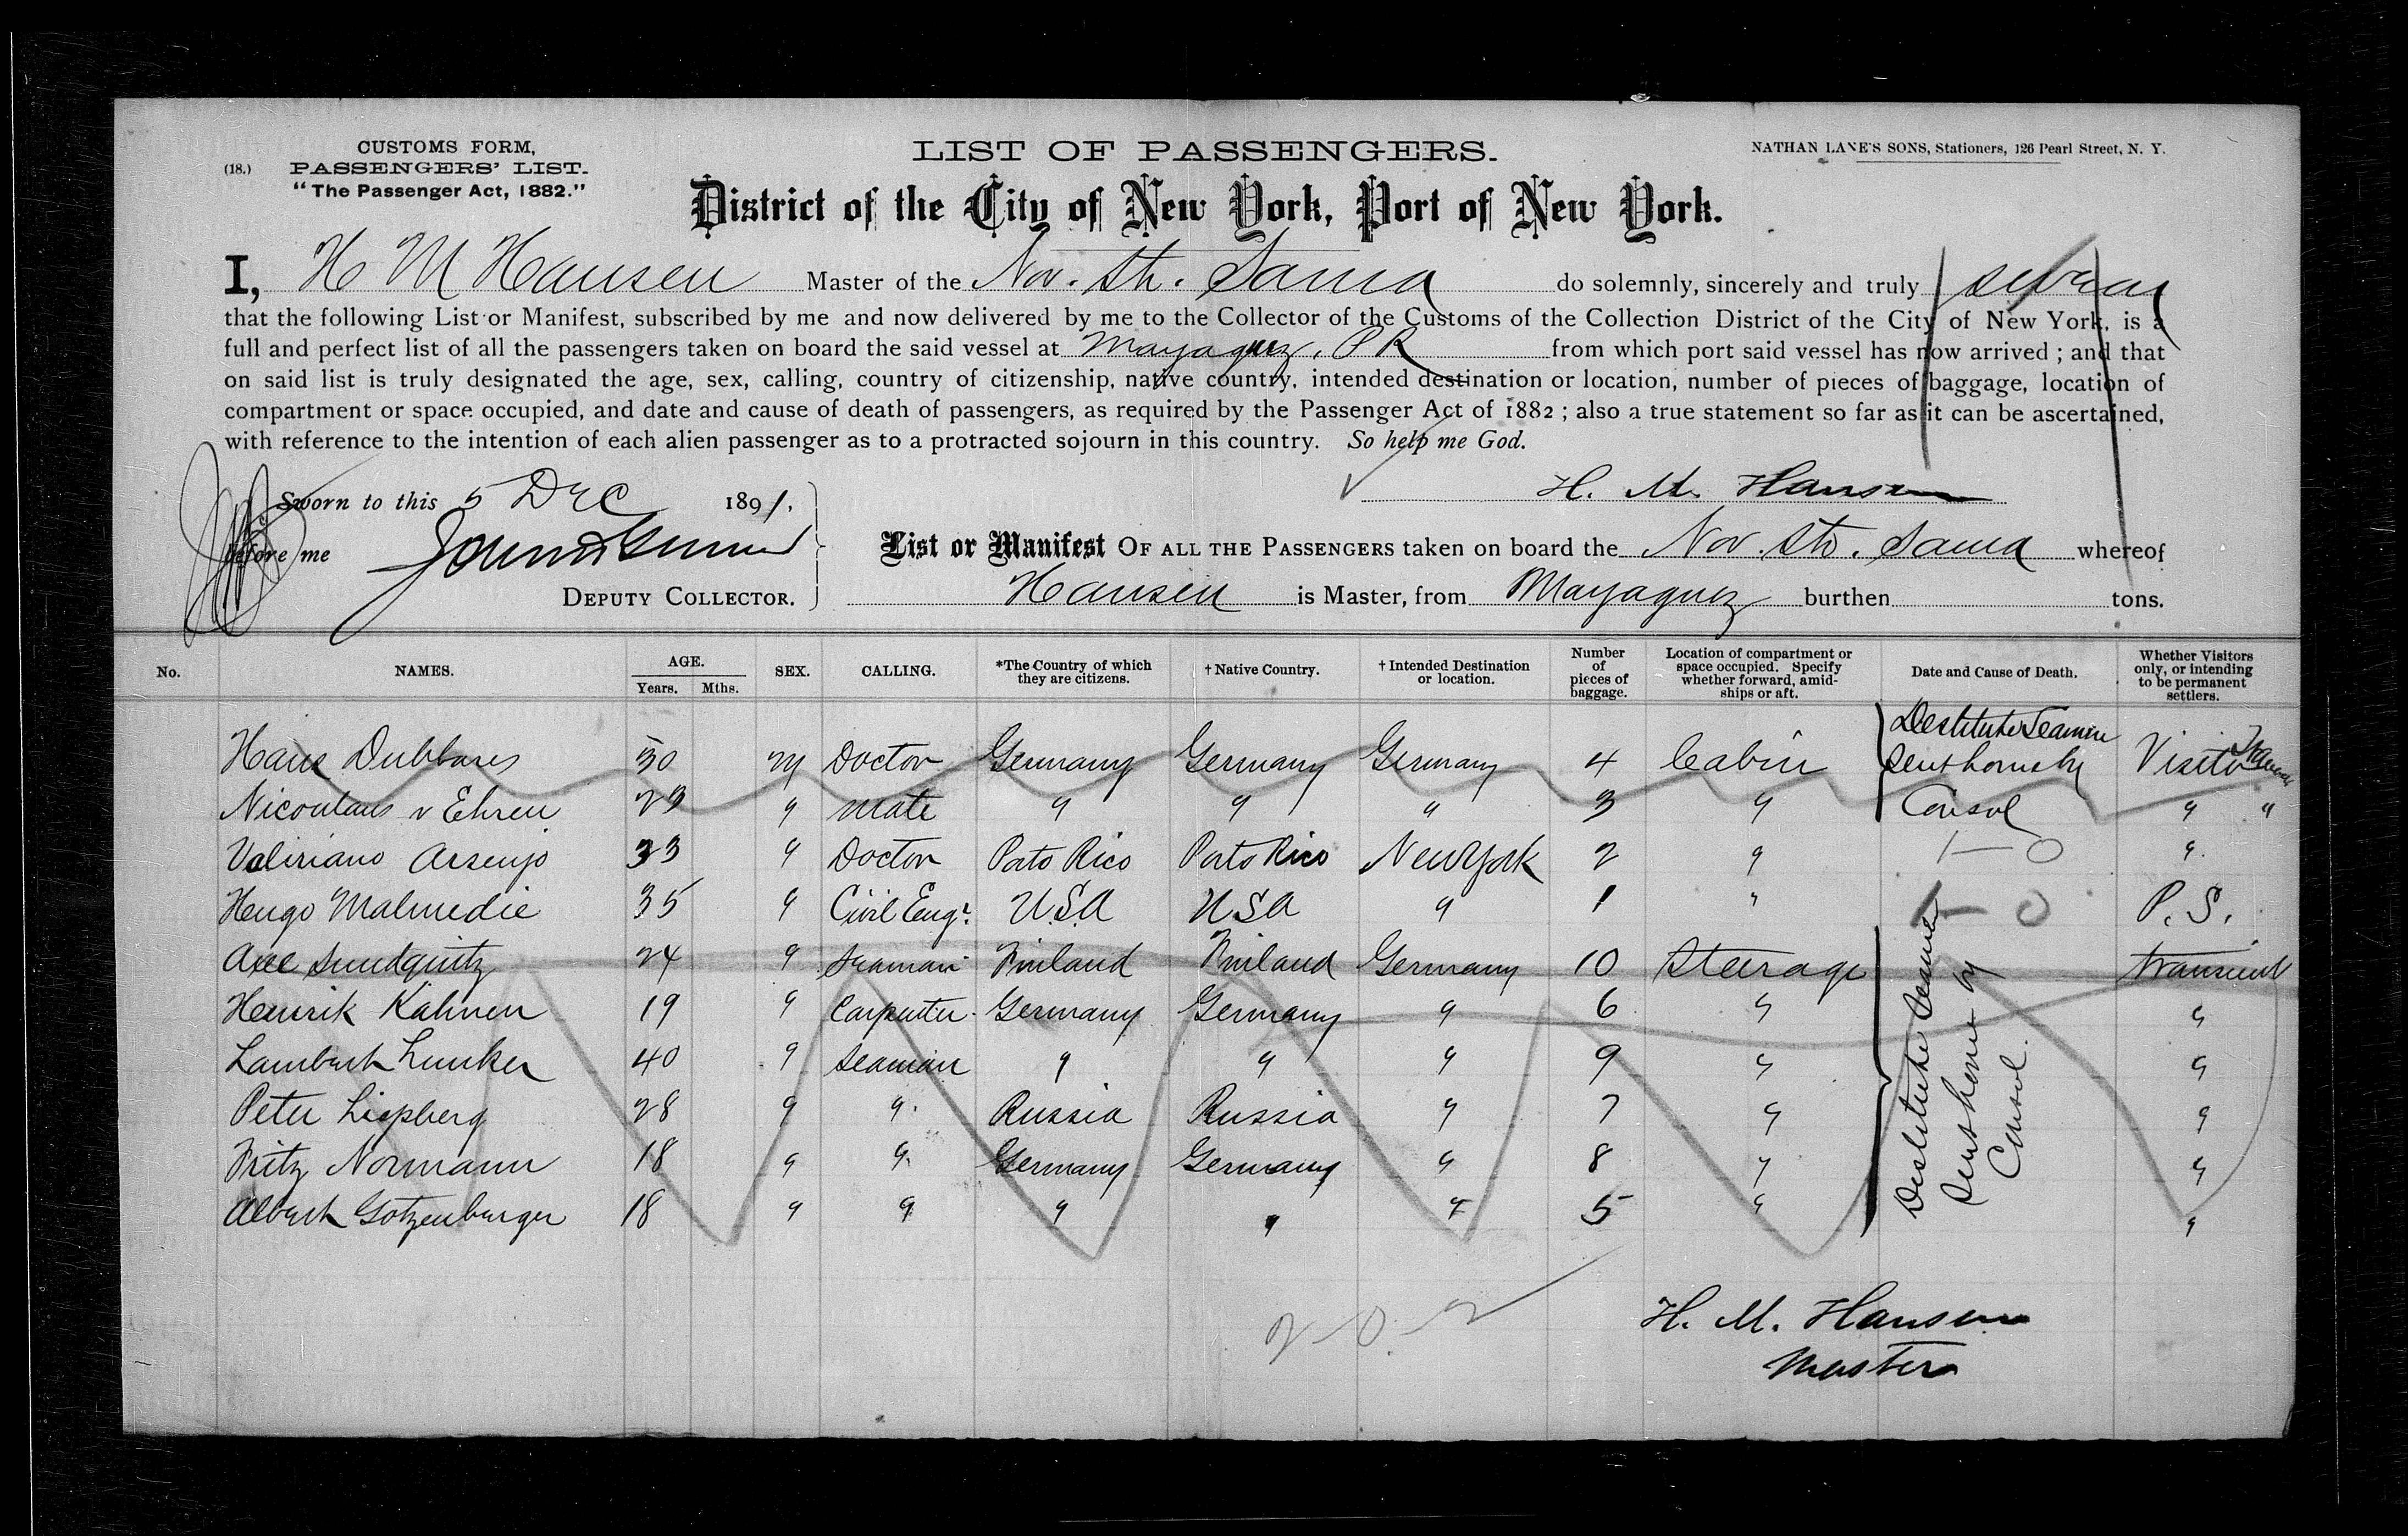 CUSTOMS FORM,
(18.) PASSENGERS' LIST.
"The Passenger Act, 1882."
LIST OF PASSENGERS.
NATHAN LANE'S SONS, Stationers, 126 Pearl Street, N. Y.
District of the City of New York, Port of New York.
I, H M Hansen Master of the Nor. Str. Sama do solemnly, sincerely and truly swear
that the following List or Manifest, subscribed by me and now delivered by me to the Collector of the Customs of the Collection District of the City of New York, is a
full and perfect list of all the passengers taken on board the said vessel at Mayaguez, P R from which port said vessel has now arrived ; and that
on said list is truly designated the age, sex, calling, country of citizenship, native country, intended destination or location, number of pieces of baggage, location of
compartment or space occupied, and date and cause of death of passengers, as required by the Passenger Act of 1882 ; also a true statement so far as it can be ascertained,
with reference to the intention of each alien passenger as to a protracted sojourn in this country. So help me God.
H. M. Hansen
Sworn to this 5 Dec 1891.
before me
DEPUTY COLLECTOR.
List or Manifest OF ALL THE PASSENGERS taken on board the Nor. Str. Sama whereof
Hansen is Master, from Mayaguez burthen tons.
No. NAMES. AGE. Years. Mths. SEX. CALLING. *The Country of which they are citizens. † Native Country. † Intended Destination or location. Number of pieces of baggage. Location of compartment or space occupied. Specify whether forward, amidships or aft. Date and Cause of Death. Whether Visitors only, or intending to be permanent settlers.
Hans Dubbars 30 M Doctor Germany Germany Germany 4 Cabin Destitute Seamen sent home by Consul Visitor
Nicoulaus v Ehren 23 " Mate " " " 3 " " "
Valiriano Arsenjo 33 " Doctor Porto Rico Porto Rico New York 2 " 1 — 0 "
Hugo Malmedie 35 " Civil Engr. U.S.A U S A " 1 " 1 — 0 P. S.
Axel Sundquitz 24 " Seaman Finland Finland Germany 10 Steerage Destitute Seamen sent home by Consul. transient
Henrik Kahnen 19 " Carpenter Germany Germany " 6 " "
Lambert Lunker 40 " Seaman " " " 9 " "
Peter Liepberg 28 " " Russia Russia " 7 " "
Fritz Normann 18 " " Germany Germany " 8 " "
Albert Gotzenburger 18 " " " " " 5 " "
2 - 0 - 2
H. M. Hansen
Master